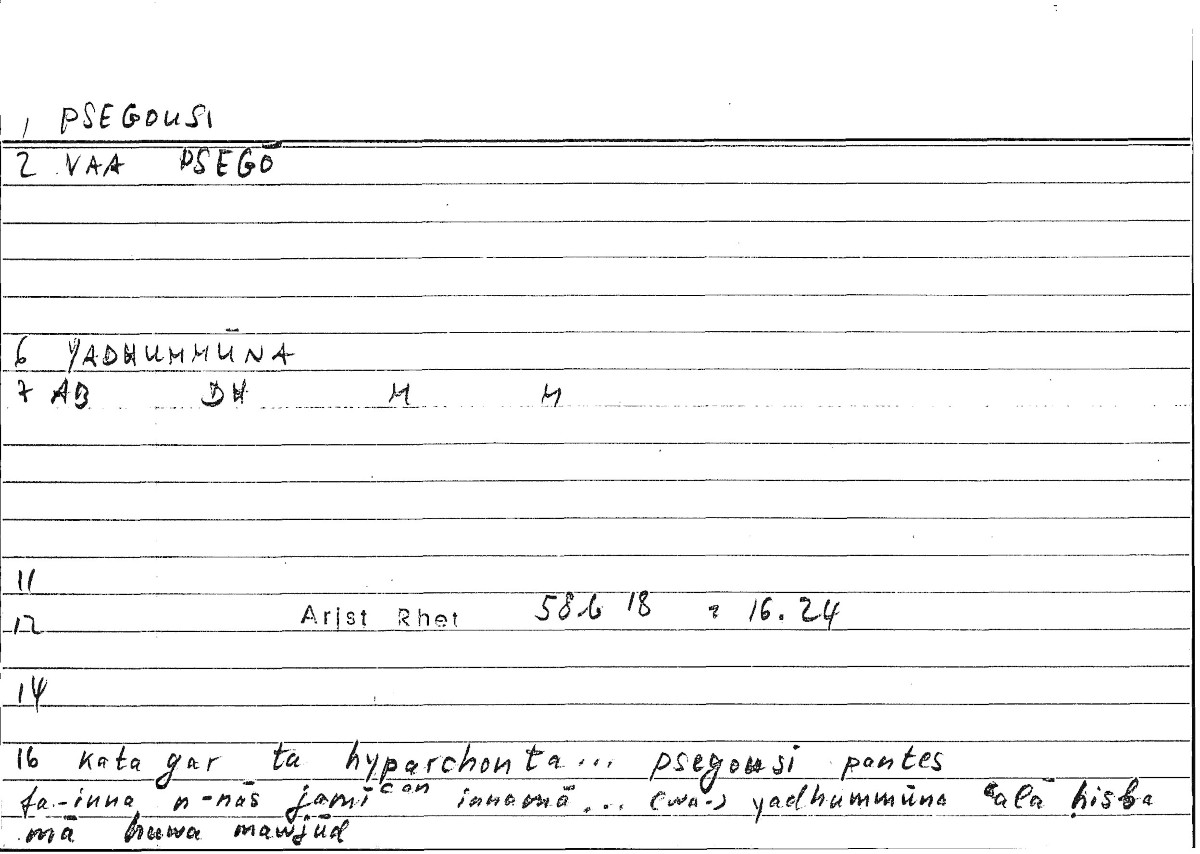 1 PSEGOUSI
2 VAA PSEGŌ
6 YADHUMMŪNA
7 AB DH M M
11
12 Arist Rhet 58b 18 = 16.24
14
16 kata gar ta hyparchonta... psegousi pantes
fa-inna n-nās jamīʿan innamā... (wa-) yadhummūna ʿalā ḥisba
mā huwa mawjūd